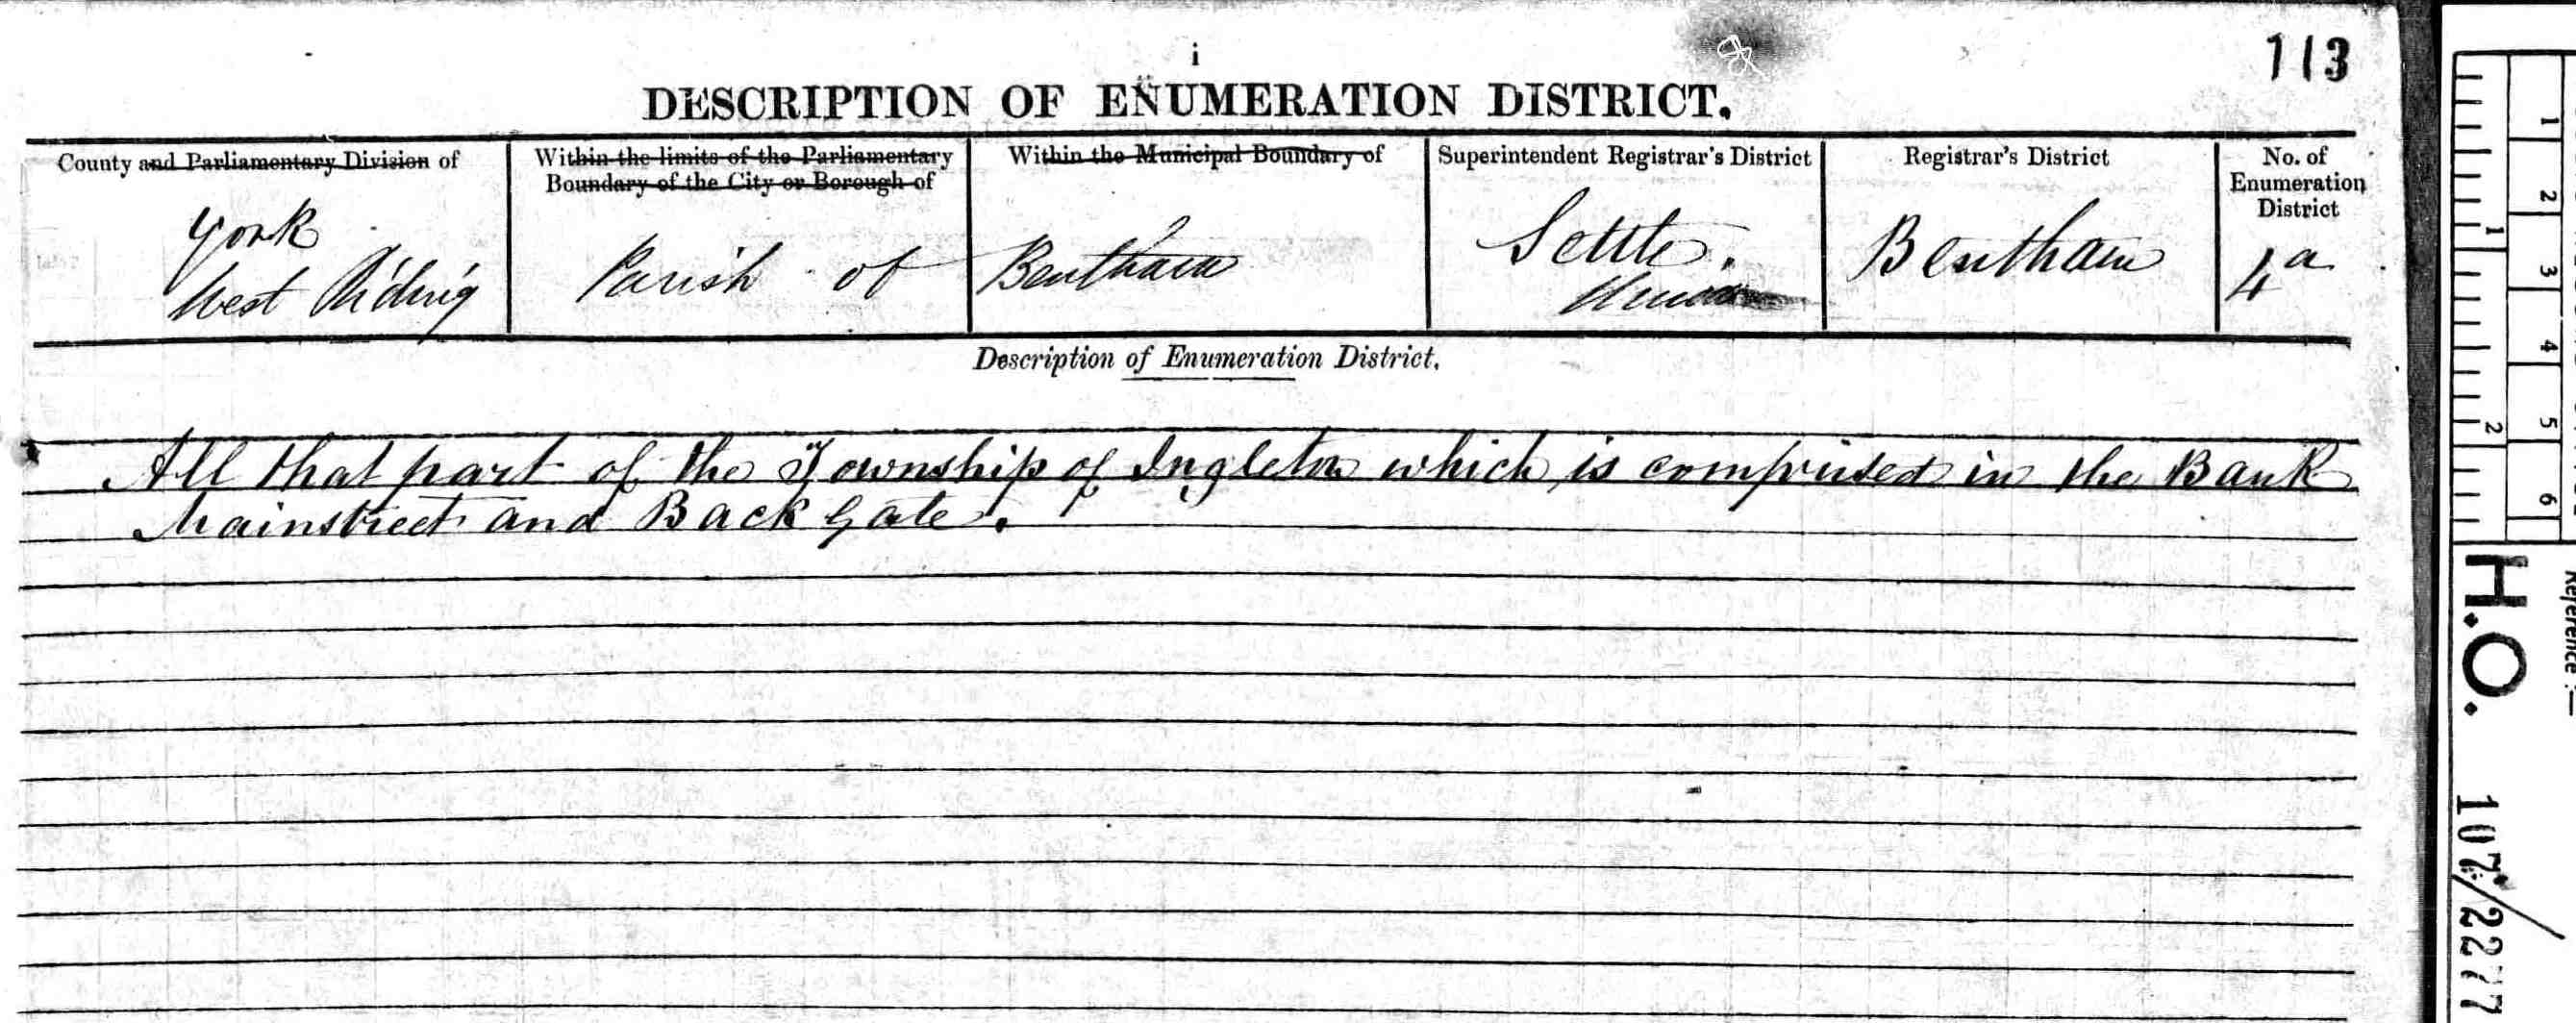 i
113
DESCRIPTION OF ENUMERATION DISTRICT.
County and Parliamentary Division of
York
West Riding
Within the limits of the Parliamentary
Boundary of the City or Borough of
Parish of
Within the Municipal Boundary of
Bentham
Superintendent Registrar's District
Settle.
Union
Registrar's District
Bentham
No. of
Enumeration
District
4a
Description of Enumeration District.
All that part of the Township of Ingleton which is comprised in the Bank
Mainstreet and Back Gate.
1
2
3
4
5
6
1
2
Reference :—
H.O. 107/2277